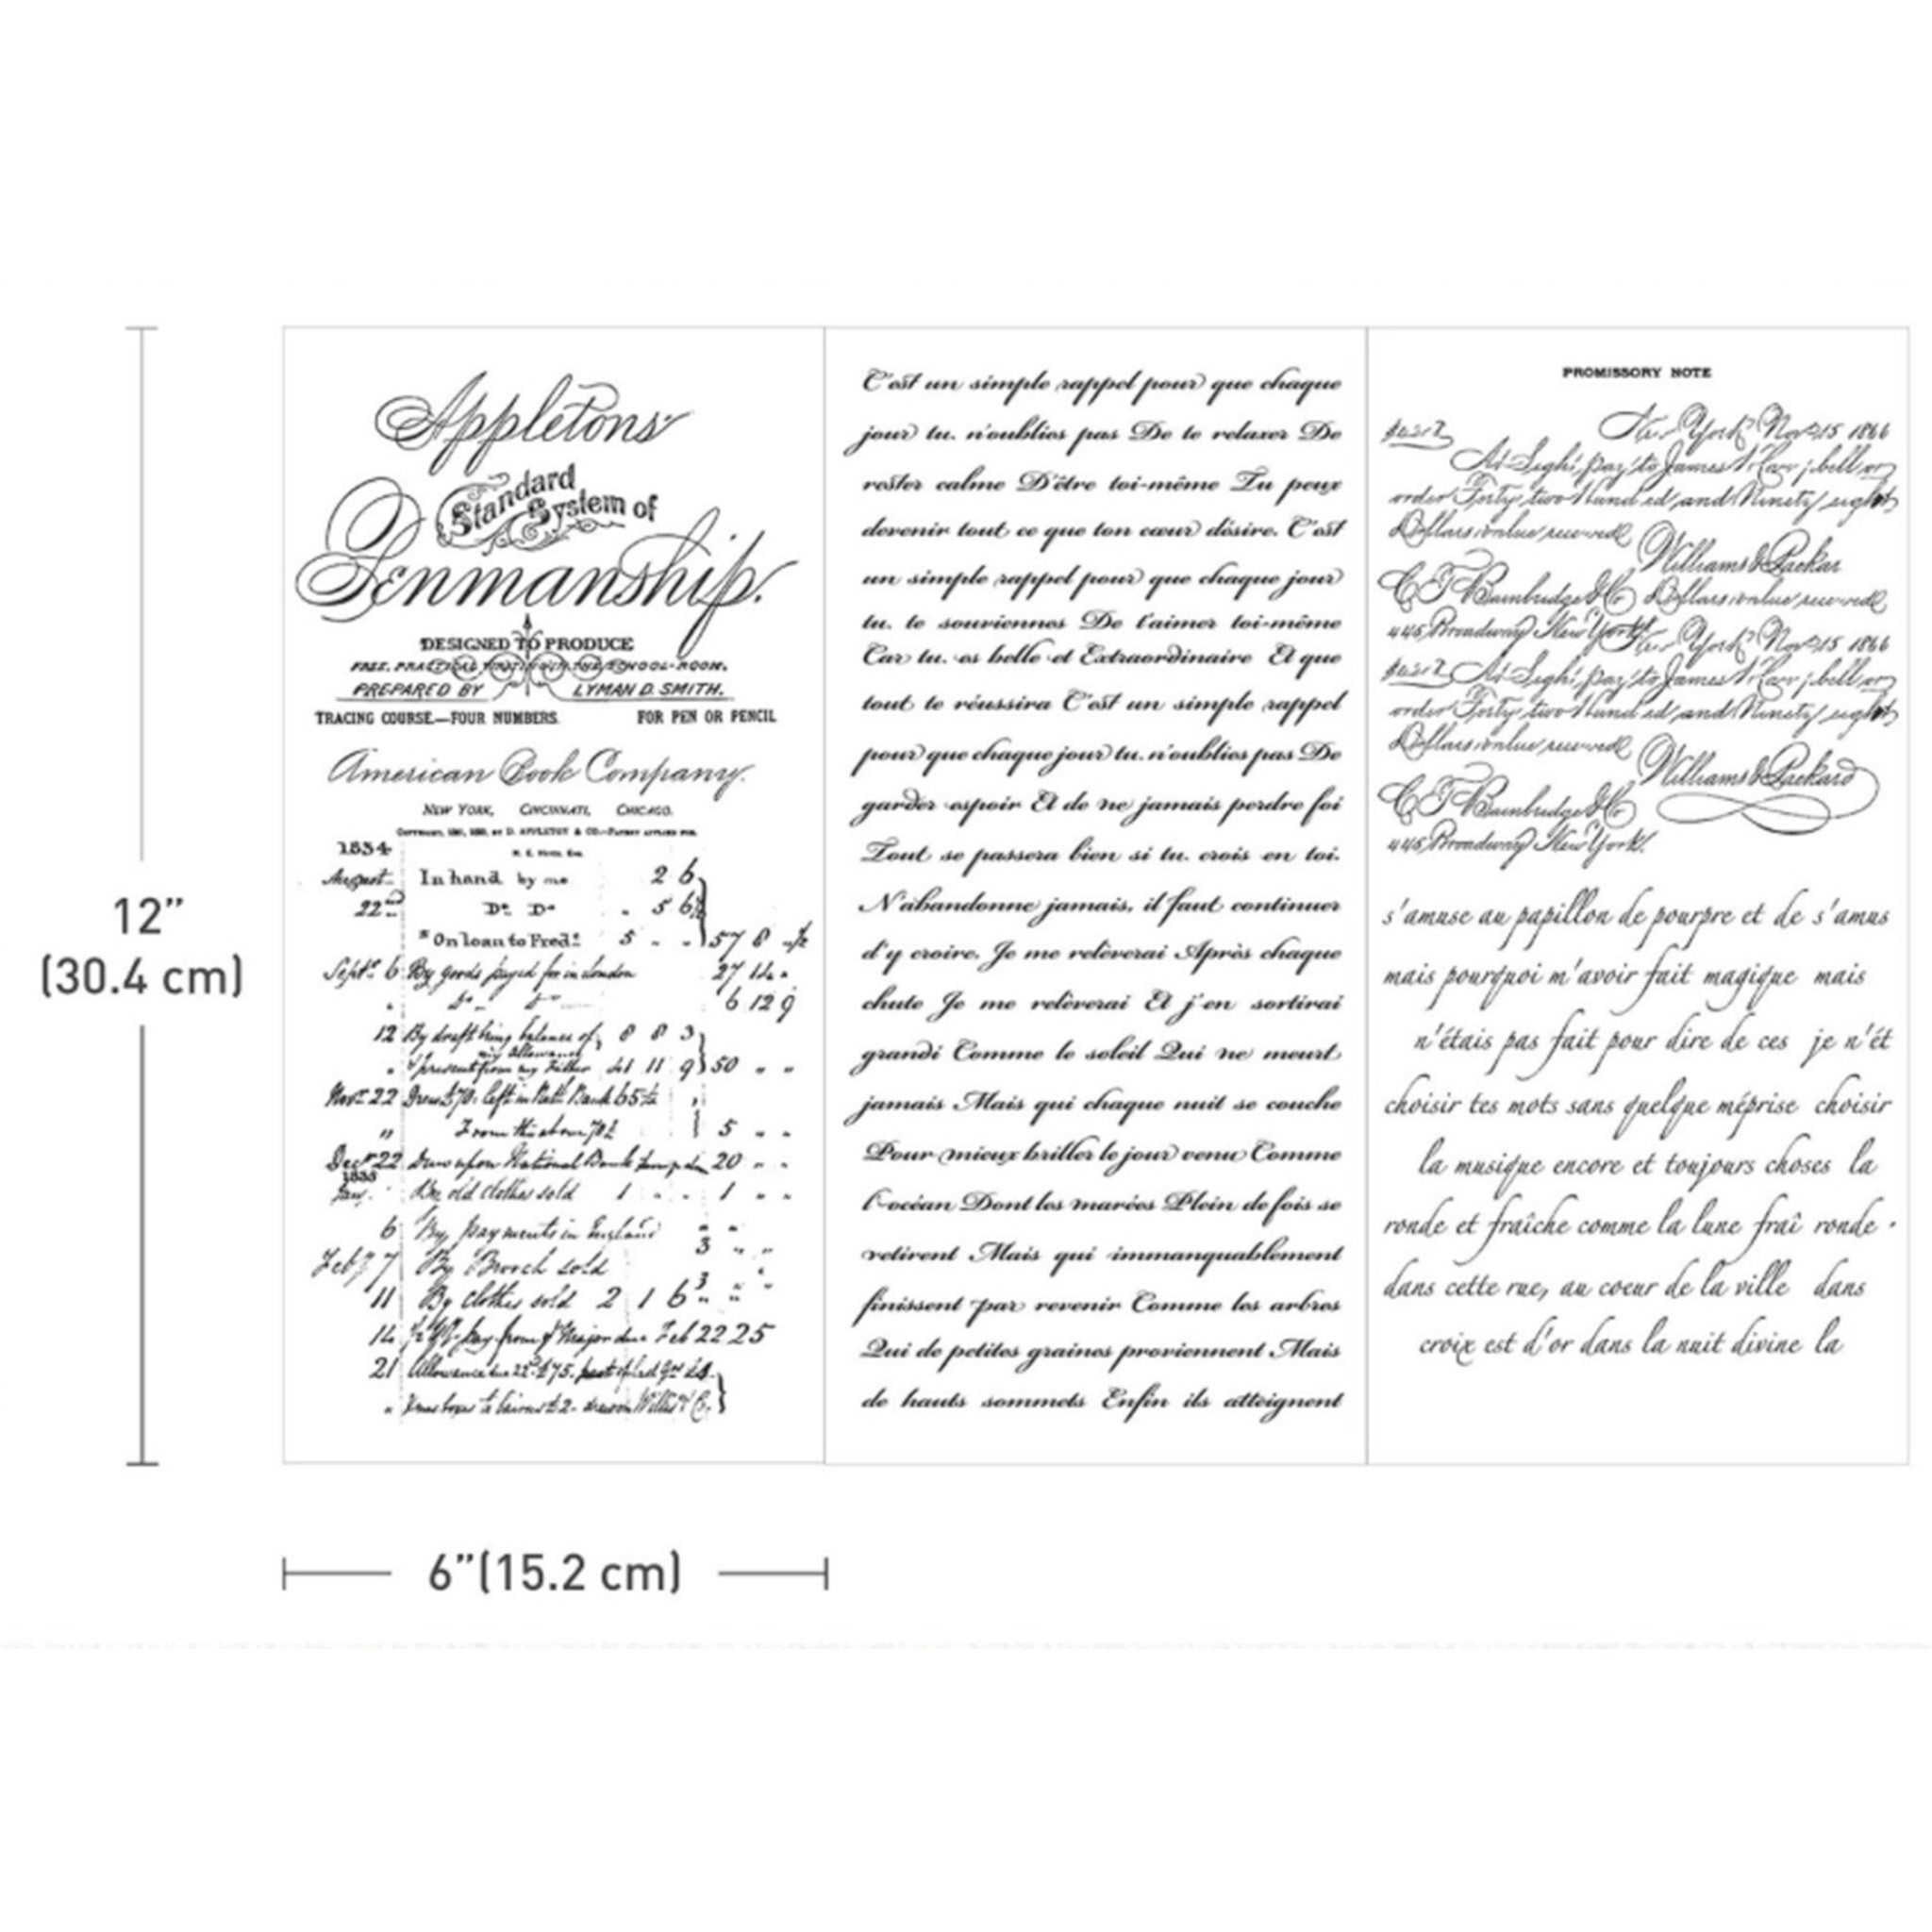 12”
(30.4 cm)
6”(15.2 cm)
Appletons'
Standard
System of
Penmanship.
DESIGNED TO PRODUCE
FREE, PRACTICAL WRITING IN THE SCHOOL-ROOM.
PREPARED BY LYMAN D. SMITH.
TRACING COURSE.—FOUR NUMBERS. FOR PEN OR PENCIL
American Book Company.
NEW YORK, CINCINNATI, CHICAGO.
COPYRIGHT, BY D. APPLETON & CO.—PATENT APPLIED FOR.
1834
August In hand by me 2 6
22nd Do Do 5 6½
On loan to Fred. 5 " " 57 8
Sept. 6 By goods payed for in London 27 14 "
" Do Do 6 12 9
12 By draft being balance of 8 8 3
my allowance
" present from my Father 41 11 9 50 " "
Novr 22 left in Natl Bank 65
" From this above 5 " "
Decr 22 Drew upon National Bank 20 " "
1835
Jany. By old clothes sold 1 " " 1 " "
6 By payments in England
3 " "
Feby 7 By Brooch sold
11 By clothes sold 2 1 6 3
14 pay from Major due Feb 22 25
21 Allowance due 22d £75.
C'est un simple rappel pour que chaque
jour tu n'oublies pas De te relaxer De
rester calme D'être toi-même Tu peux
devenir tout ce que ton cœur désire. C'est
un simple rappel pour que chaque jour
tu te souviennes De t'aimer toi-même
Car tu es belle et Extraordinaire Et que
tout te réussira C'est un simple rappel
pour que chaque jour tu n'oublies pas De
garder espoir Et de ne jamais perdre foi
Tout se passera bien si tu crois en toi.
N'abandonne jamais, il faut continuer
d'y croire. Je me relèverai Après chaque
chute Je me relèverai Et j'en sortirai
grandi Comme le soleil Qui ne meurt
jamais Mais qui chaque nuit se couche
Pour mieux briller le jour venu Comme
l'océan Dont les marées Plein de fois se
retirent Mais qui immanquablement
finissent par revenir Comme les arbres
Qui de petites graines proviennent Mais
de hauts sommets Enfin ils atteignent
PROMISSORY NOTE
New York, Nov 15 1866
At Sight, pay to James W. Campbell or
order Forty two Hundred and Ninety eight
Dollars value received
Williams & Packar
C. T. Bainbridge & Co Dollars value received
445 Broadway New York New York, Nov 15 1866
At Sight, pay to James W. Campbell or
order Forty two Hundred and Ninety eight
Dollars value received
Williams & Packard
C. T. Bainbridge & Co
445 Broadway New York.
s'amuse au papillon de pourpre et de s'amus
mais pourquoi m'avoir fait magique mais
n'étais pas fait pour dire de ces je n'ét
choisir tes mots sans quelque méprise choisir
la musique encore et toujours choses la
ronde et fraîche comme la lune fraî ronde ·
dans cette rue, au coeur de la ville dans
croix est d'or dans la nuit divine la